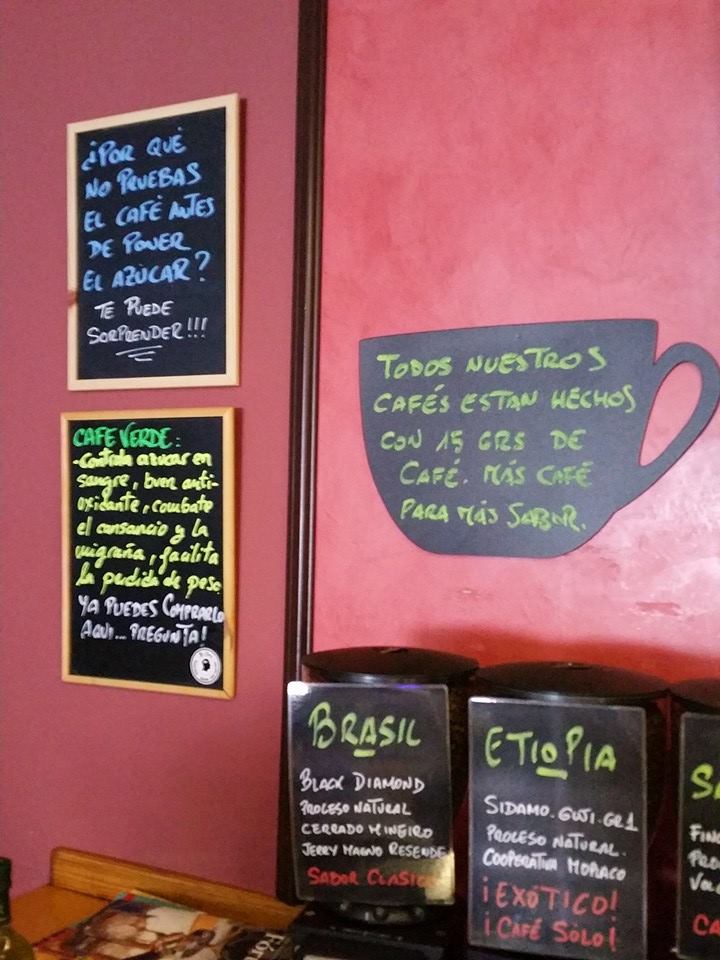 ¿POR QUÉ
NO PRUEBAS
EL CAFÉ ANTES
DE PONER
EL AZÚCAR?
TE PUEDE
SORPRENDER!!!
CAFE VERDE:
-Controla azucar en
sangre, buen anti-
oxidante, combate
el cansancio y la
migraña, facilita
la perdida de peso
YA PUEDES COMPRARLO
AQUI... PREGUNTA!
TODOS NUESTROS
CAFÉS ESTAN HECHOS
CON 15 GRS DE
CAFÉ. MÁS CAFÉ
PARA MÁS SABOR.
BRASIL
BLACK DIAMOND
PROCESO NATURAL
CERRADO MINEIRO
JERRY MAGNO RESENDE
SABOR CLASICO
ETIOPIA
SIDAMO.GUJI.GR1
PROCESO NATURAL.
COOPERATIVA MORACO
¡EXÓTICO!
¡CAFÉ SÓLO!